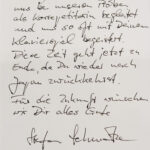 uns bei unseren Proben
als Korrepetitorin begleitet
und uns oft mit Deinem
Klavierspiel begeistert.
Diese Zeit geht jetzt zu
Ende, da Du wieder nach
Japan zurückkehrst.
Für die Zukunft wünschen
wir Dir alles Gute
Stefan